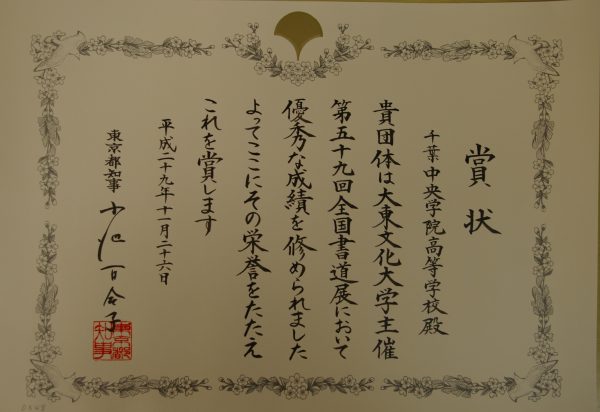 賞状
千葉中央学院高等学校殿
貴団体は大東文化大学主催
第五十九回全国書道展において
優秀な成績を修められました
よってここにその栄誉をたたえ
これを賞します
平成二十九年十一月二十六日
東京都知事 小池百合子
東京都知事